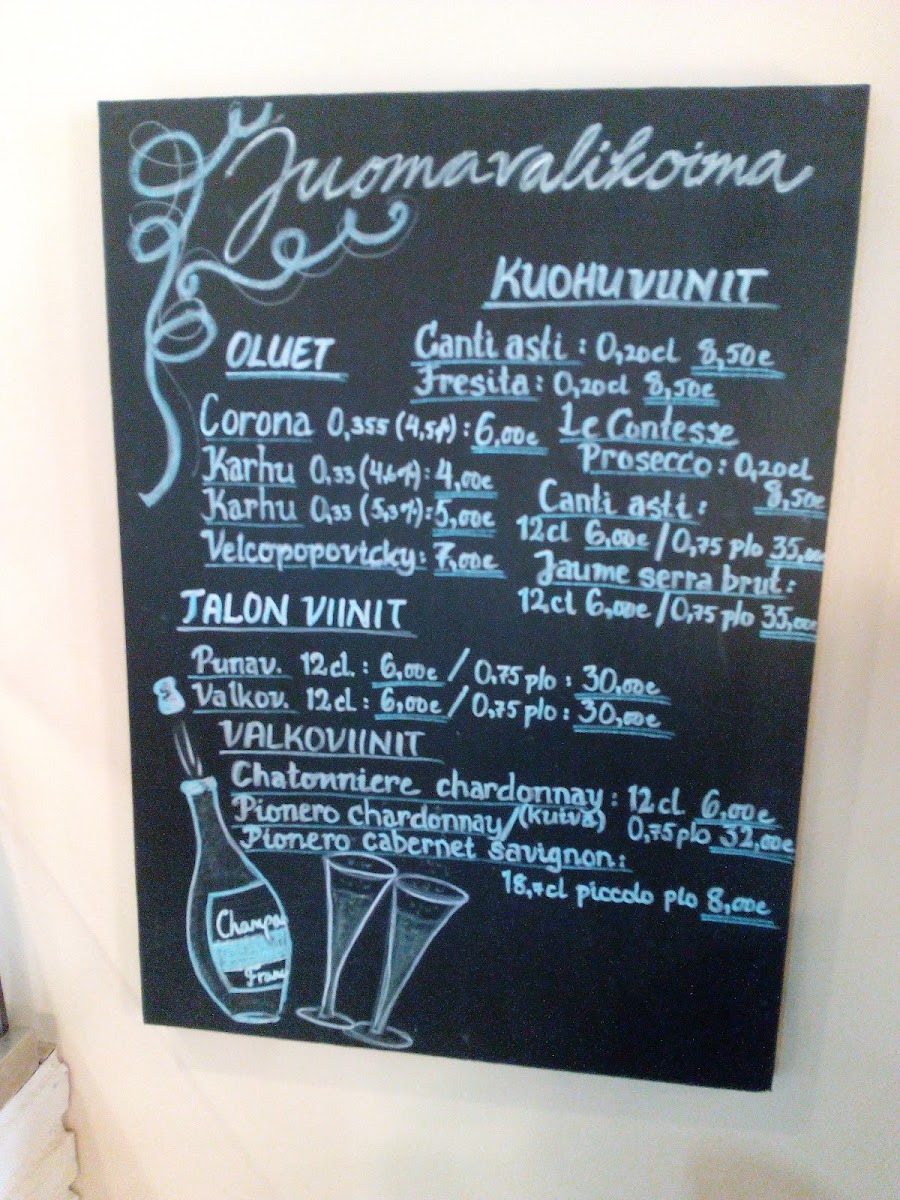 Juomavalikoima
KUOHUVIINIT
Canti asti: 0,20cl 8,50e
Fresita: 0,20cl 8,50e
Le Contesse
Prosecco: 0,20cl
8,50e
Canti asti:
12cl 6,00e / 0,75 plo 35,00
Jaume serra brut:
12cl 6,00e / 0,75 plo 35,00e
OLUET
Corona 0,355 (4,5%): 6,00e
Karhu 0,33 (4,6%): 4,00e
Karhu 0,33 (5,3%): 5,00e
Velcopopovicky: 7,00e
TALON VIINIT
Punav. 12cl.: 6,00e / 0,75 plo: 30,00e
Valkov. 12cl.: 6,00e / 0,75 plo: 30,00e
VALKOVIINIT
Chatonniere chardonnay: 12cl 6,00e
Pionero chardonnay/(kuiva) 0,75 plo 32,00e
Pionero cabernet savignon:
18,7cl piccolo plo 8,00e
Champa
Fran